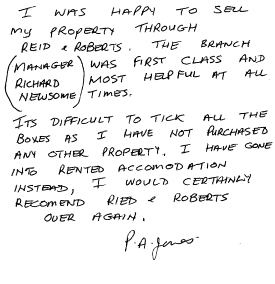 I WAS HAPPY TO SELL
MY PROPERTY THROUGH
REID & ROBERTS. THE BRANCH
(MANAGER WAS FIRST CLASS AND
RICHARD MOST HELPFUL AT ALL
NEWSOME) TIMES.
ITS DIFFICULT TO TICK ALL THE
BOXES AS I HAVE NOT PURCHASED
ANY OTHER PROPERTY. I HAVE GONE
INTO RENTED ACCOMODATION
INSTEAD, I WOULD CERTAINLY
RECOMEND RIED & ROBERTS
OVER AGAIN.
P.A. Jones